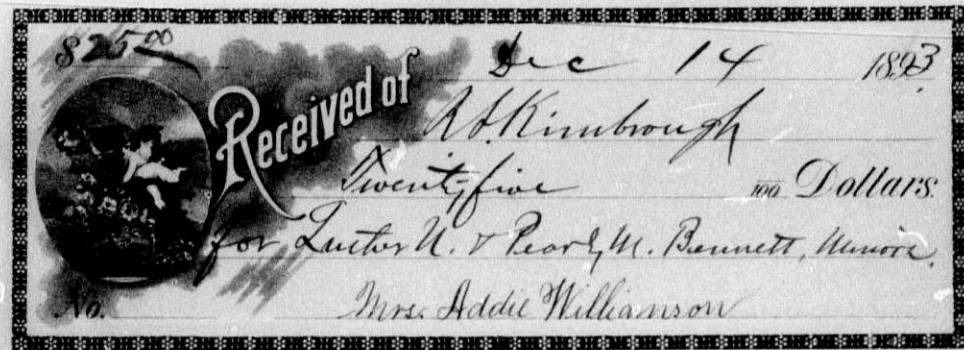 $25.00 Dec 14 1893
Received of R. S. Kimbrough
Twenty-five /100 Dollars.
for Luther N. & Pearly M. Bennett, Minors.
No. Mrs. Addie Williamson